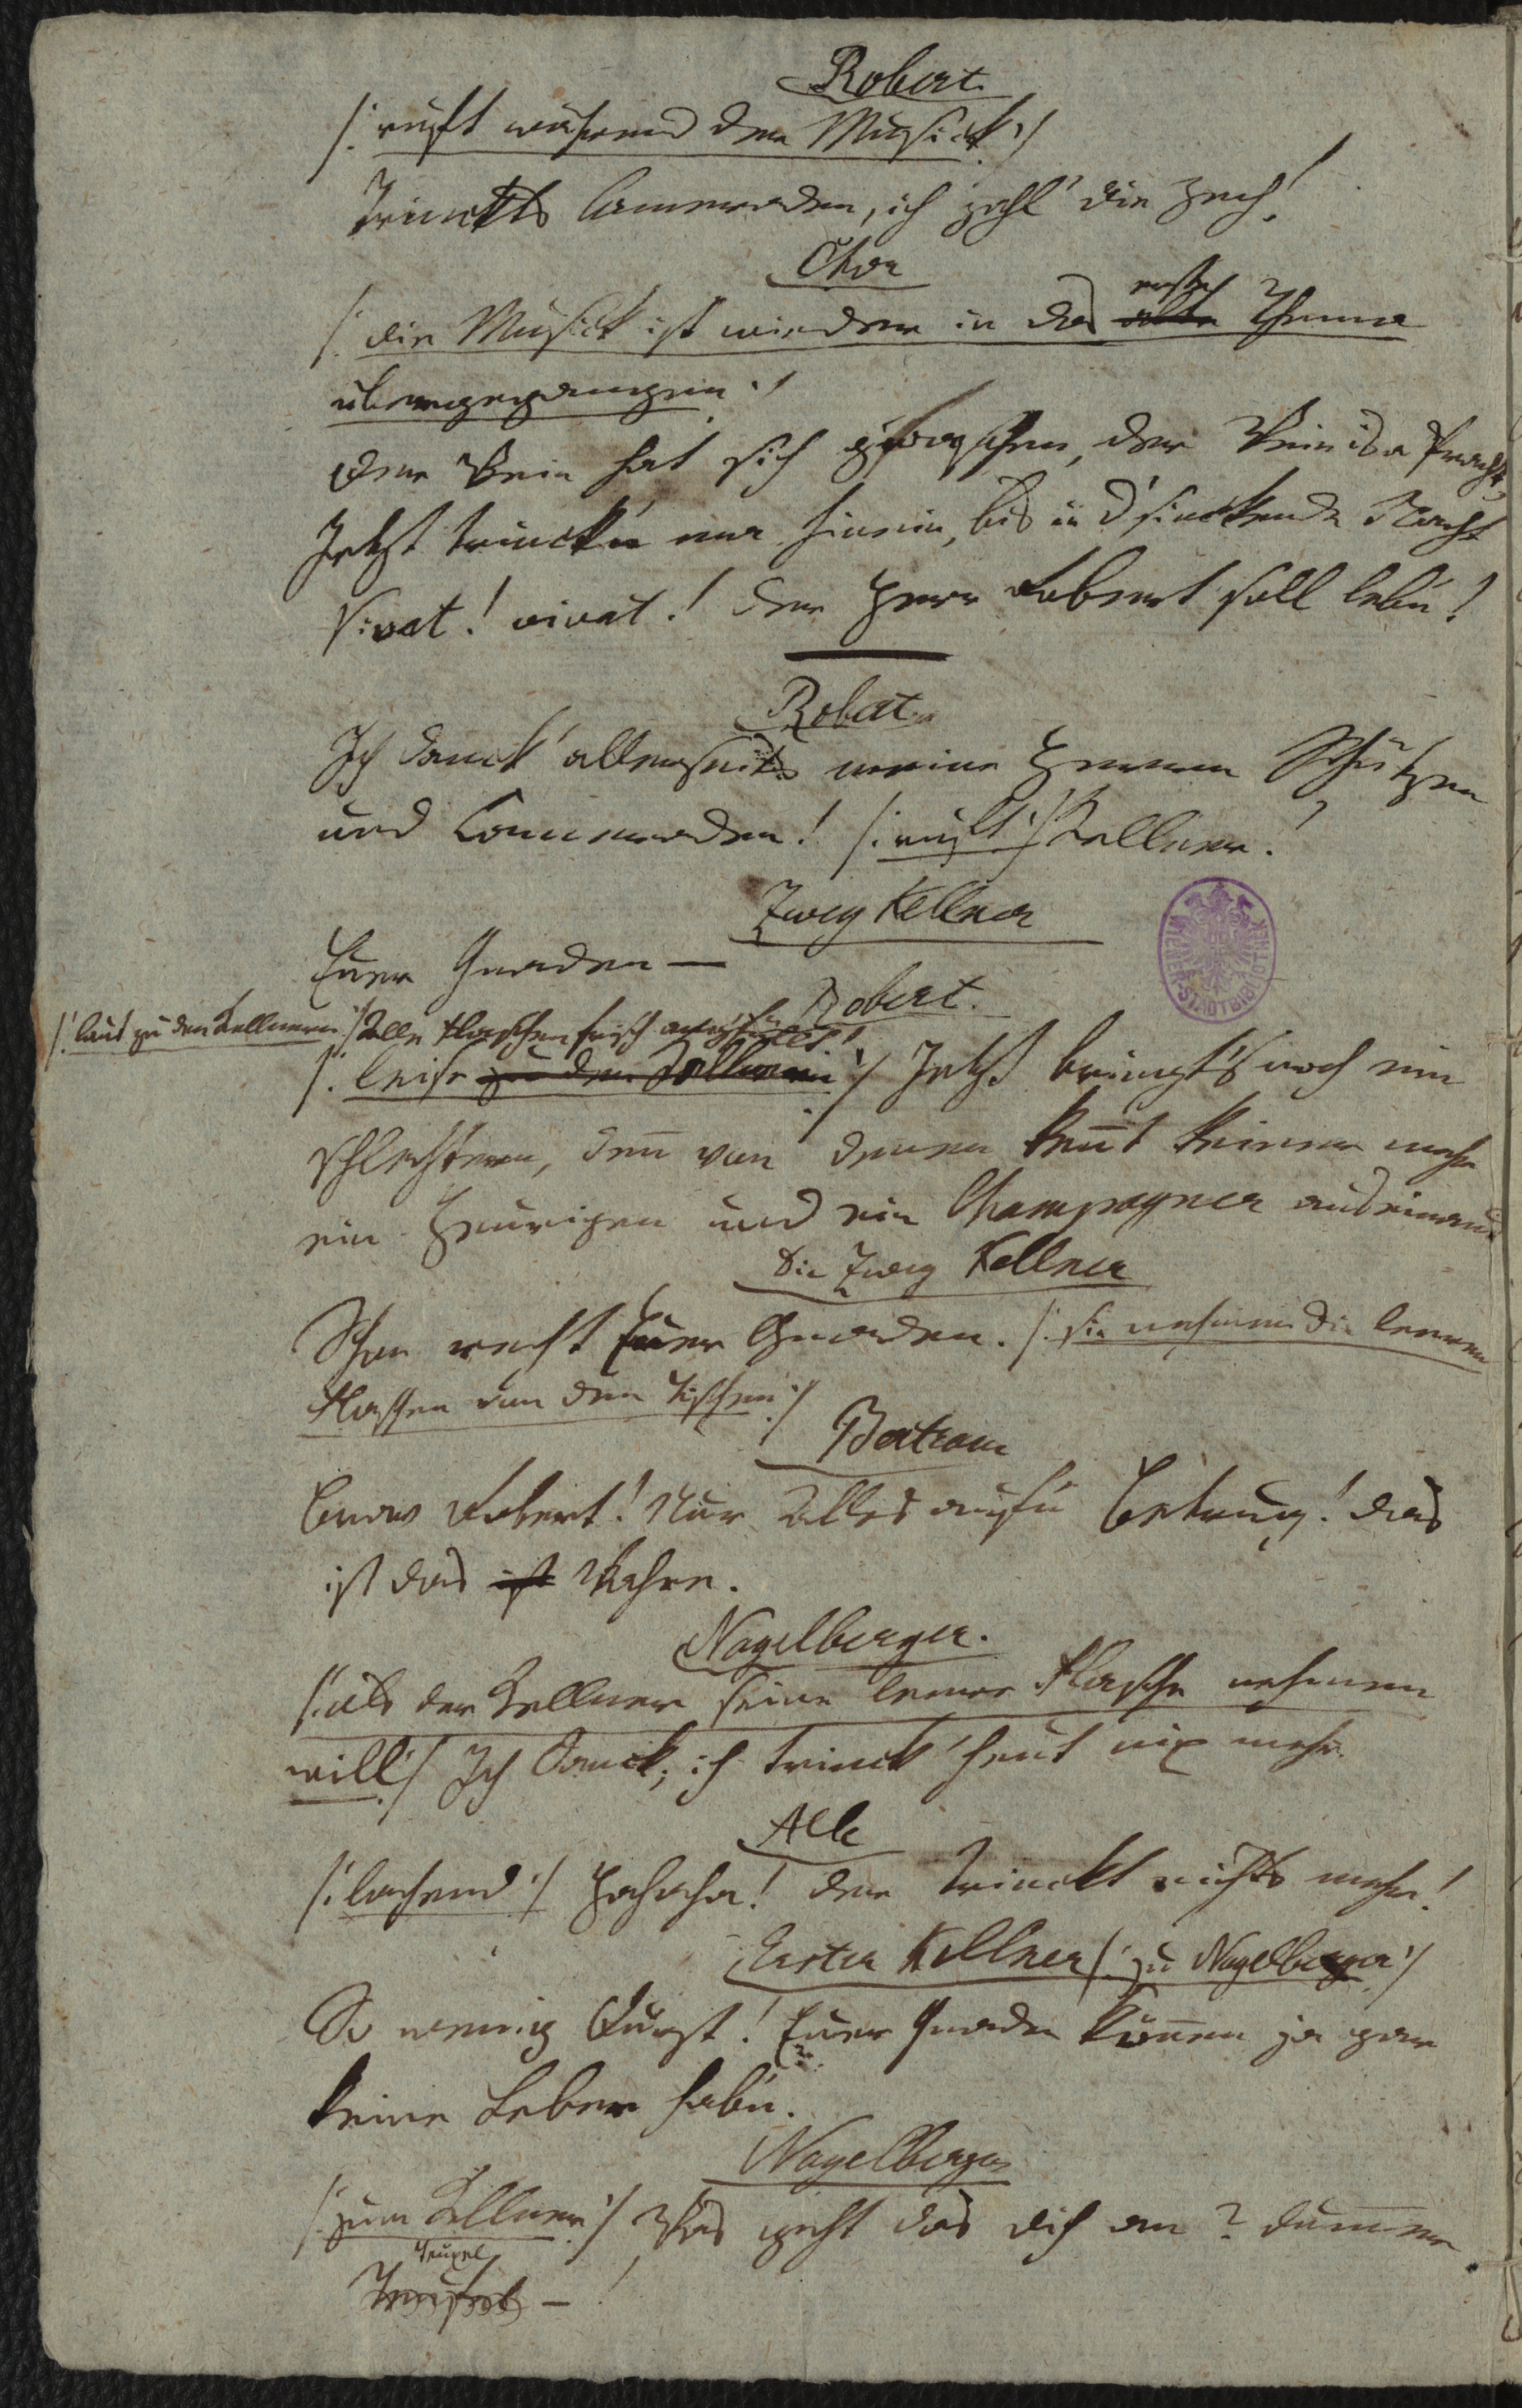 Robert
/: ruft während der Musick :/
Trinckts Cameraden, ich zahl' die Zech!
Chor
/: die Musick ist wieder in das alte erste Thema
übergegangen :/
Der Wein hat sich gwaschen, der Wein is a Pracht,
Jetzt trinck'n mir hinein, bis in d' sinckende Nacht
Vivat! vivat! der Herr Robert soll leb'n!
Robert
Ich danck' allerseits meine Herren Schützen
und Cameraden! /: ruft :/ Kellner!
Zwey Kellner
Euer Gnaden —
Robert.
/: laut zu den Kellnern :/ Alle Flaschen frisch angefüllt!
/: leise zu den Kellnern :/ Jetzt bringt's noch ein
schlechtern, denn von denen kennt keiner mehr
ein Heurigen und ein Champagner auseinand
Die zwey Kellner
Schon recht Euer Gnaden. /: sie nehmen die leeren
Flaschen von den Tischen :/
Bertram
Bravo Robert! Nur Alles auf'n Betrug! das
ist das ist Wahre.
Nagelberger.
/: als der Kellner seine leere Flasche nehmen
will :/ Ich danck, ich trinck' heut nix mehr.
Alle
/: lachend :/ Hahaha! der trinckt nichts mehr!
Erster Kellner /: zu Nagelberger :/
So wenig Durst! Euer Gnaden können ja gar
keine Leber hab'n.
Nagelberger
/: zum Kellner :/ Was geht das dich an? dummer
Teuxel
Teufel — !
WIENER STADTBIBLIOTHEK